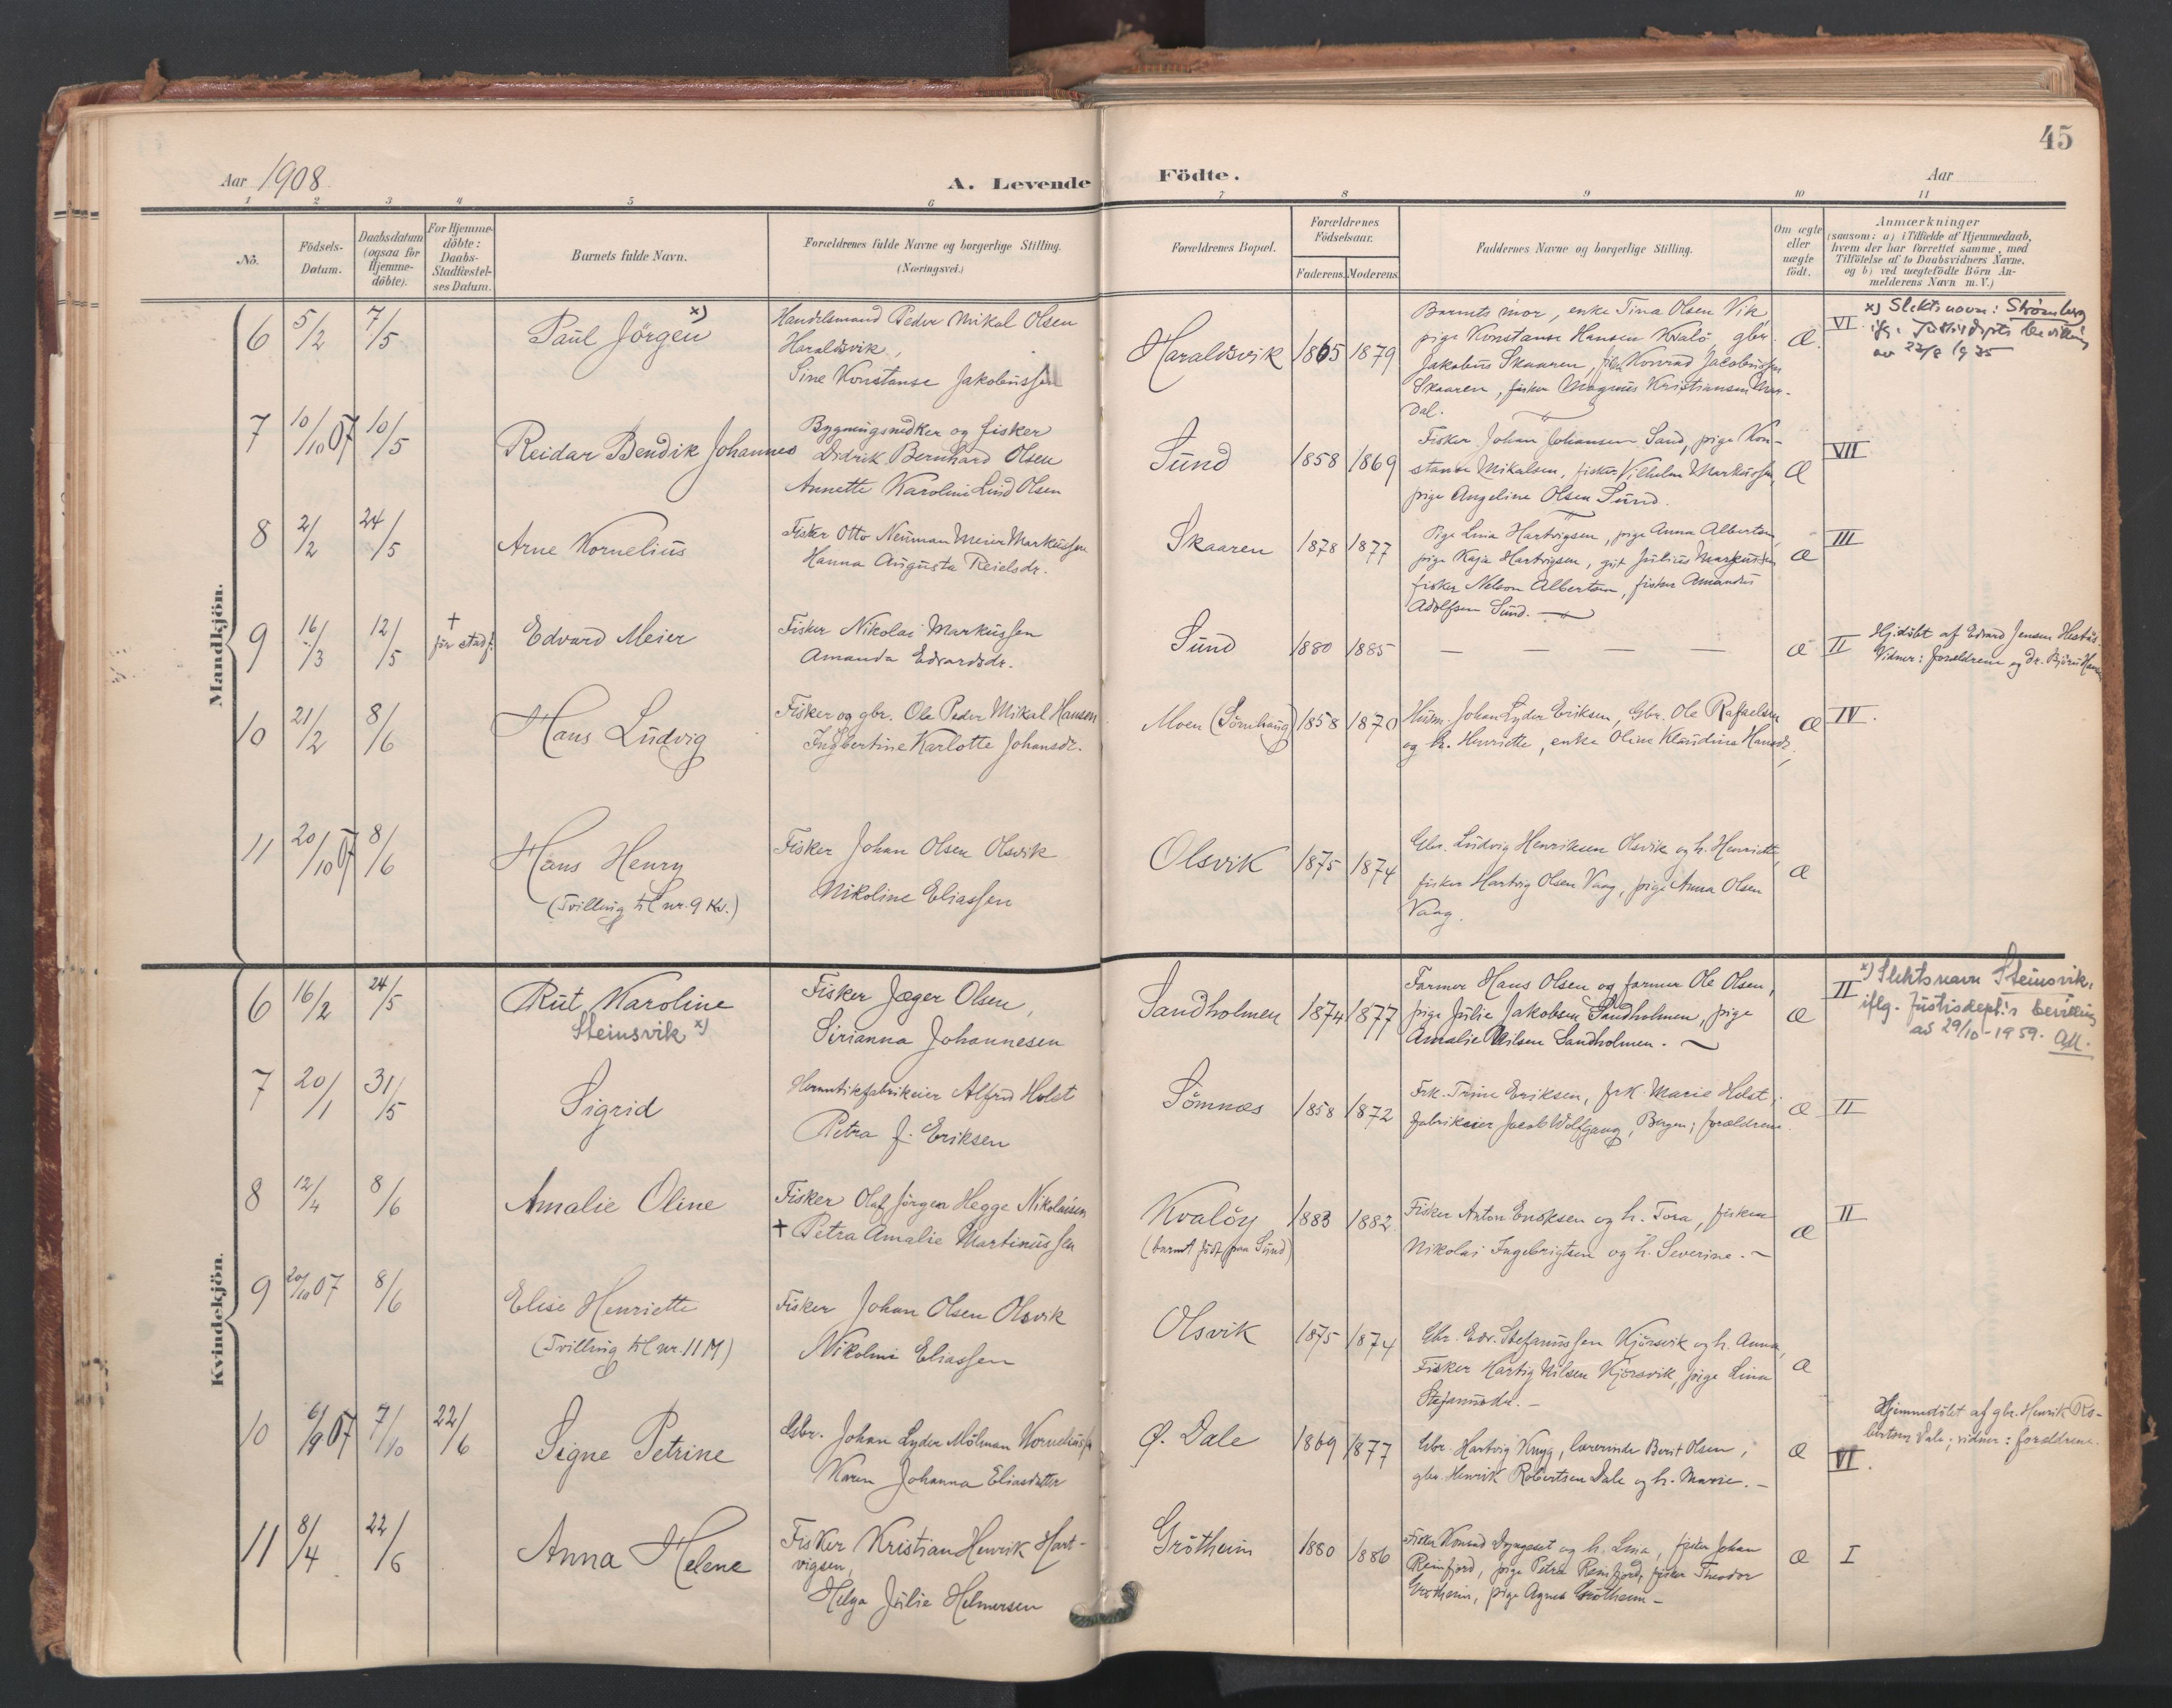 45
Aar 1908
A. Levende Födte.
Aar
1 2 3 4 5 6 7 8 9 10 11
No.
Födsels-Datum.
Daabsdatum (ogsaa for Hjemme-döbte).
For Hjemme-döbte: Daabs-Stadfæstel-ses Datum.
Barnets fulde Navn.
Forældrenes fulde Navne og borgerlige Stilling. (Næringsvei.)
Forældrenes Bopæl.
Forældrenes Födselsaar.
Faderens. Moderens.
Faddernes Navne og borgerlige Stilling.
Om ægte eller uægte födt.
Anmærkninger
(saasom: a) i Tilfælde af Hjemmedaab,
hvem der har forrettet samme, med
Tilföielse af to Daabsvidners Navne,
og b) ved uægtefödte Börn An-
melderens Navn m. V.)
Mandkjön.
6 5/2 7/5 Paul Jörgen x)
Handelsmand Peder Mikal Olsen
Haraldsvik,
Sine Konstanse Jakobussen
Haraldsvik 1865 1879
Barnets mor, enke Tina Olsen Vik
pige Konstanse Hansen Kvalö, gbr.
Jakobus Skaaren, Konrad Jacobussen
Skaaren, fisker Magnus Kristiansen
dal.
Æ. VI
x) Slektsnavn: Strömberg
ifg. Justisdepts bevilling
av 22/8 1935
7 10/10 07 10/5 Reidar Bendik Johannes
Bygningssnedker og fisker
Didrik Bernhard Olsen
Annette Karoline Lind Olsen
Sund 1858 1869
Fisker Johan Johansen Sand, pige Kon-
stanse Mikalsen, fisker Vilhelm Markussen,
pige Angeline Olsen Sund.
Æ VII
8 2/2 24/5 Arne Kornelius
Fisker Otto Neuman Meier Markussen
Hanna Augusta Reielsdr.
Skaaren 1878 1877
Pige Lina Hartvigsen, pige Anna Albertsen,
pige Kaja Hartvigsen, gift Julius Markussen
fisker Nelson Albertsen, fisker Amandus
Adolfsen Sund.
Æ III
9 16/3 12/5 † för stadf.
Edvard Meier
Fisker Nikolai Markussen
Amanda Edvardsdr.
Sund 1880 1885
— — — —
Æ II
Hj.döbt af Edvard Jensen Hestås
Vidner: forældrene og
10 21/2 8/6 Hans Ludvig
Fisker og gbr. Ole Peder Mikal Hansen
Ingbertine Karlotte Johansdr.
Moen (Sömhaug) 1858 1870
Husm. Johan Lyder Eriksen, Gbr. Ole Rafaelsen
og h. Henriette, enke Oline Klaudine Hansdr.
Æ IV.
11 20/10 07 8/6 Hans Henry
(Tvilling til nr. 9 Kv.)
Fisker Johan Olsen Olsvik
Nikoline Eliassen
Olsvik 1875 1874
Gbr. Ludvig Henriksen Olsvik og h. Henriette,
fisker Hartvig Olsen Vaag, pige Anna Olsen
Vaag.
Æ
Kvindekjön.
6 16/2 24/5 Rut Karoline
Steinsvik x)
Fisker Jæger Olsen,
Sirianna Johannesen
Sandholmen 1874 1877
Farmer Hans Olsen og farmer Ole Olsen,
pige Julie Jakobsen Sandholmen, pige
Amalie Nilsen Sandholmen.
Æ II
x) Slektsnavn Steinsvik,
iflg. Justisdept.'s bevilling
av 29/10-1959.
7 20/1 31/5 Sigrid
Hermetikfabrikeier Alfred Holst
Petra J. Eriksen
Sömnæs 1858 1872
Frk. Trine Eriksen, frk. Marie Holst,
fabrikeier Jacob Wolfgang, Bergen; forældrene.
Æ II
8 12/4 8/6 Amalie Oline
Fisker Olaf Jörgen Hegge Nikolaisen
† Petra Amalie Martinussen
Kvalöy
(barnet födt paa Sund)
1883 1882
Fisker Anton Eriksen og h. Tora, fisker
Nikolai Ingebrigtsen og h. Severine.
Æ II
9 20/10 07 8/6 Elise Henriette
(Tvilling til nr. 11 M)
Fisker Johan Olsen Olsvik
Nikoline Eliassen
Olsvik 1875 1874
Gbr. Edv. Stefanussen Kjörsvik og h. Anna,
Fisker Hartvig Nilsen Kjörsvik, pige Lina
Stefanusdr.
Æ
10 6/9 07 7/10 22/6 Signe Petrine
Gbr. Johan Lyder Mölman Korneliussen
Karen Johanna Eliasdatter
Ø. Dale 1869 1877
Gbr. Hartvig Krygg, lærerinde Berit Olsen,
gbr. Henrik Robertsen Dale og h. Marie.
Æ VI.
Hjemmedöbt af gbr. Henrik Ro-
bertsen Dale; vidner: forældrene.
11 8/4 22/6 Anna Helene
Fisker Kristian Henrik Hart-
vigsen,
Helga Julie Helmersen
Grötheim 1880 1886
Fisker Konrad Dypaeset og h. Lina, fisker Johan
Reinfjord, pige Petra Reinfjord, fisker Theodor
Grötheim, pige Agnes Grötheim
Æ I